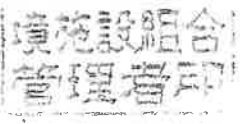 境施設組合
管理者印